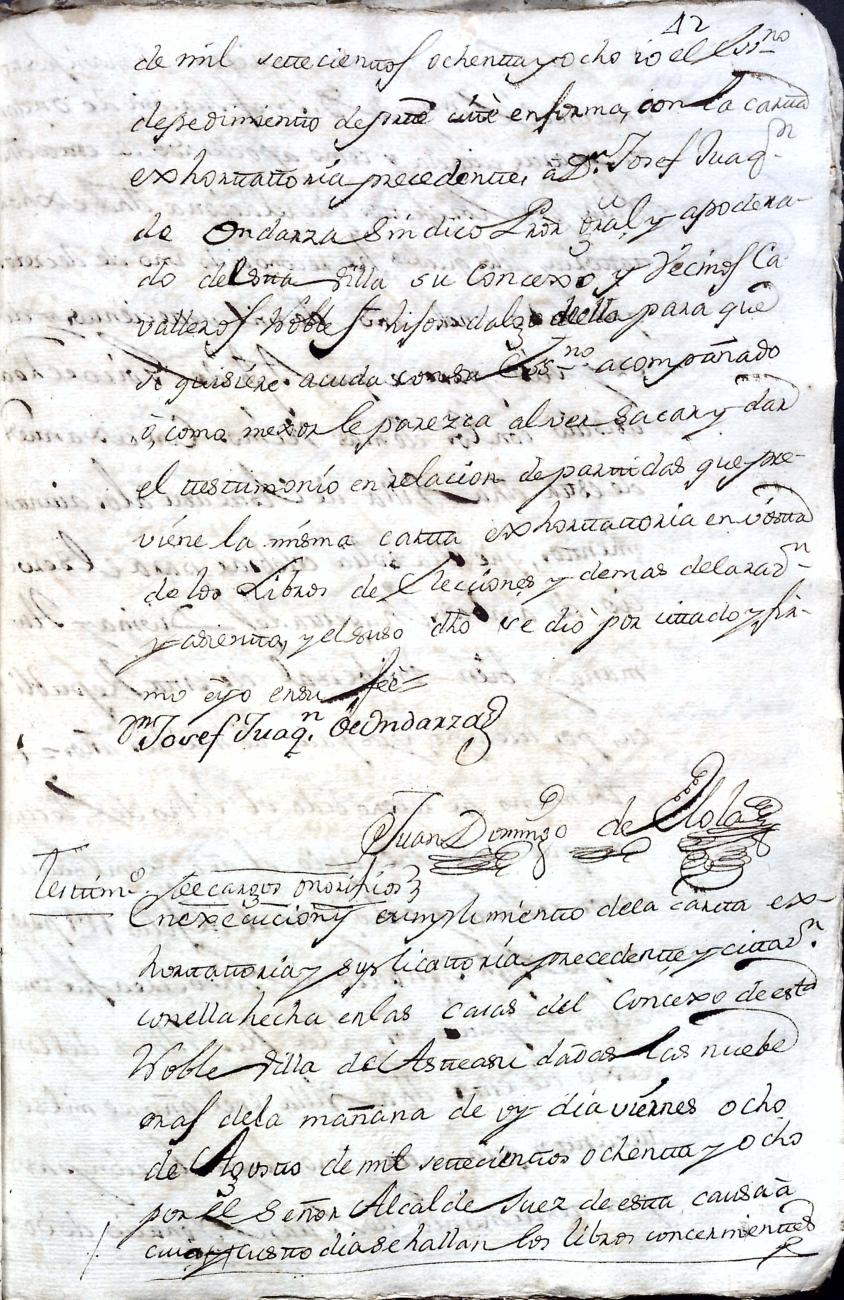 42
de mil settecienttos ochentta y ocho io el Essno
de pedimiento de partte citté en forma, con la cartta
exhorttattoria precedentte, à Dn. Josef Juaqn
de Ondarza Sindico Pror Gral, y apodera-
do de estta Villa su Concexo y Vecinos Ca-
valleros Nobles hijosdalgo de ella para que
si quisiére acuda con su Essno acompañado
ò, como mexor le parezca al ver sacar y dar
el testtimonio en relacion de parttidas que pre-
viéne la misma cartta exhorttattoria en vistta
de los Libros de Elecciones y demas de la razn
y asientto, y el suso dho se dió por cittado y fir-
mó è yo en su feè =
Dn Josef Juaqn. de Ondarza
Juan Domingo de Elola
Testtimo. de cargos onorificos
En execucion y cumplimiento de la cartta ex-
horttattoria y suplicattoria precedentte y cittazn.
con ella hecha en las casas del Concexo de estta
Noble Villa de Astteasu dadas las nuebe
oras de la mañana de oy dia viérnes ocho
de Agostto de mil settecienttos ochentta y ocho
por el Señor Alcalde Juez de estta causa à
cuia custtodia se hallan los libros concernienttes